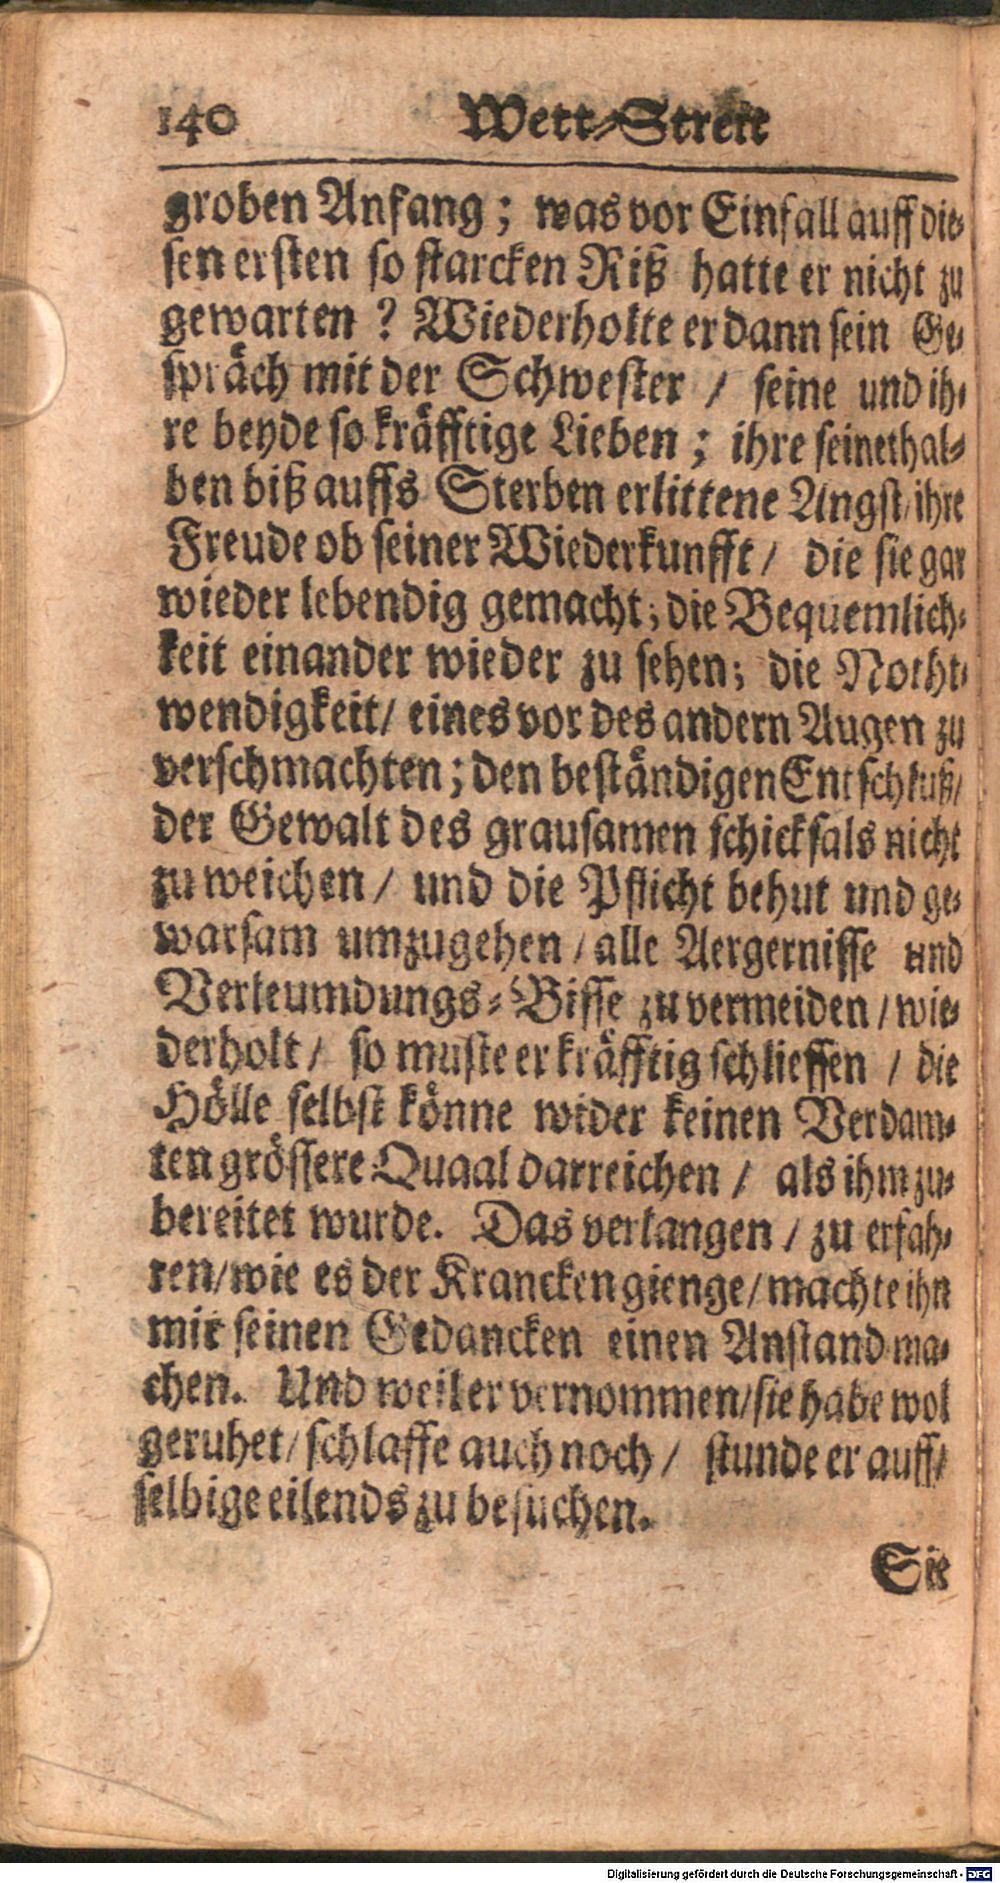 140 Wett-Streit
groben Anfang; was vor Einfall auff die-
sen ersten so starcken Riß hatte er nicht zu
gewarten? Wiederholte er dann sein Ge-
spräch mit der Schwester / seine und ih-
re beyde so kräfftige Lieben; ihre seinethal-
ben biß auffs Sterben erlittene Angst/ ihre
Freude ob seiner Wiederkunfft / die sie gar
wieder lebendig gemacht; die Bequemlich-
keit einander wieder zu sehen; die Notht-
wendigkeit/ eines vor des andern Augen zu
verschmachten; den beständigen Entschluß/
der Gewalt des grausamen schicksals nicht
zu weichen / und die Pflicht behut und ge-
warsam umzugehen / alle Aergernisse und
Verleumdungs-Bisse zu vermeiden / wie-
derholt / so muste er kräfftig schliessen / die
Hölle selbst könne wider keinen Verdam-
ten grössere Quaal darreichen / als ihm zu-
bereitet wurde. Das verlangen / zu erfah-
ren/ wie es der Krancken gienge/ machte ihn
mit seinen Gedancken einen Anstand ma-
chen. Und weil er vernommen/ sie habe wol
geruhet/ schlaffe auch noch / stunde er auff/
selbige eilends zu besuchen.
Sie
Digitalisierung gefördert durch die Deutsche Forschungsgemeinschaft - DFG